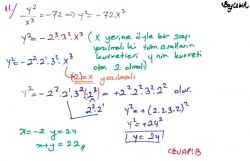 41.) y²/x³ = -72 → y² = -72x³
y² = -2³.3².x³ (x yerine öyle bir sayı
yazılmalı ki tüm asalların
kuvvetleri y'nin kuvveti
olan 2 olmalı)
y² = -2².2¹.3².x³
(-2) = x yazılmalı
y² = -2².2¹.3².(-2³) = +2².2².3².2² olur.
2².2¹
y² = +(2.2.3.2)²
y² = +24²
y = 24
x = -2 y = 24
x + y = 22
CEVAP: B